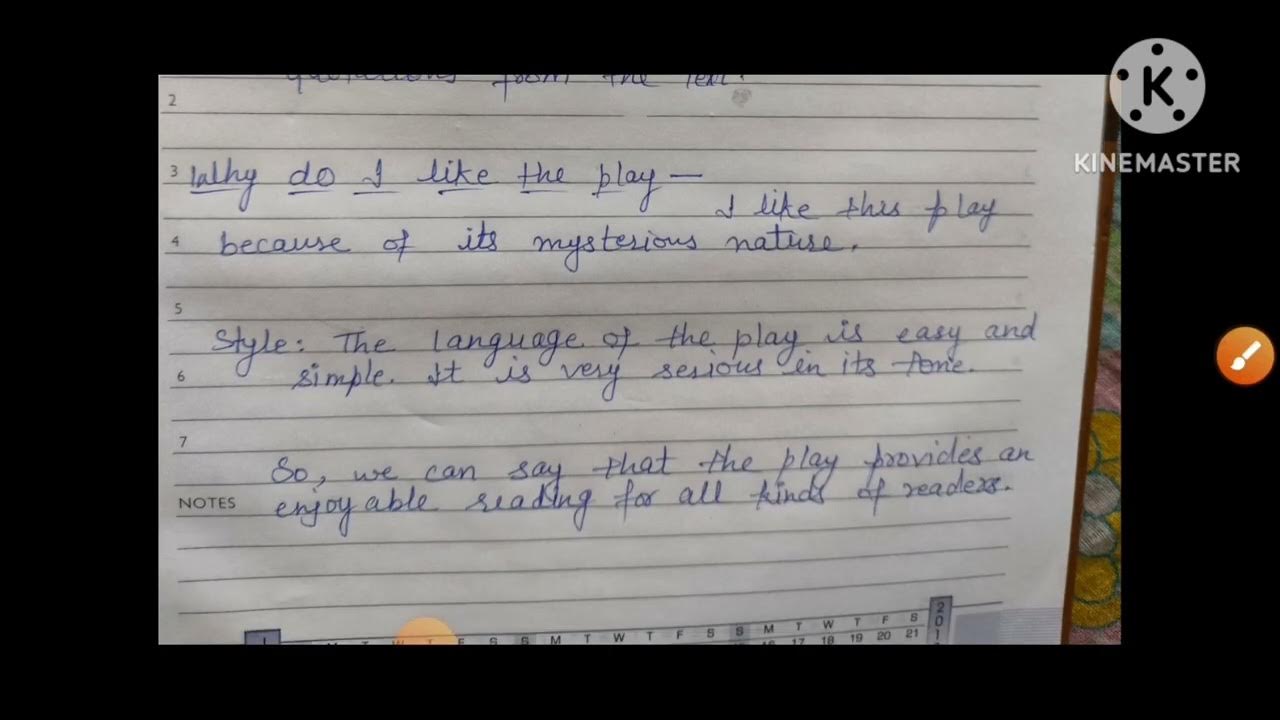 quotations from the text.
2
KINEMASTER
3 Why do I like the play —
I like this play
4 because of its mysterious nature.
5
Style: The language of the play is easy and
6 simple. It is very serious in its tone.
7
So, we can say that the play provides an
NOTES enjoyable reading for all kinds of readers.
S S M T W T F S S M T W T F S
17 18 19 20 21